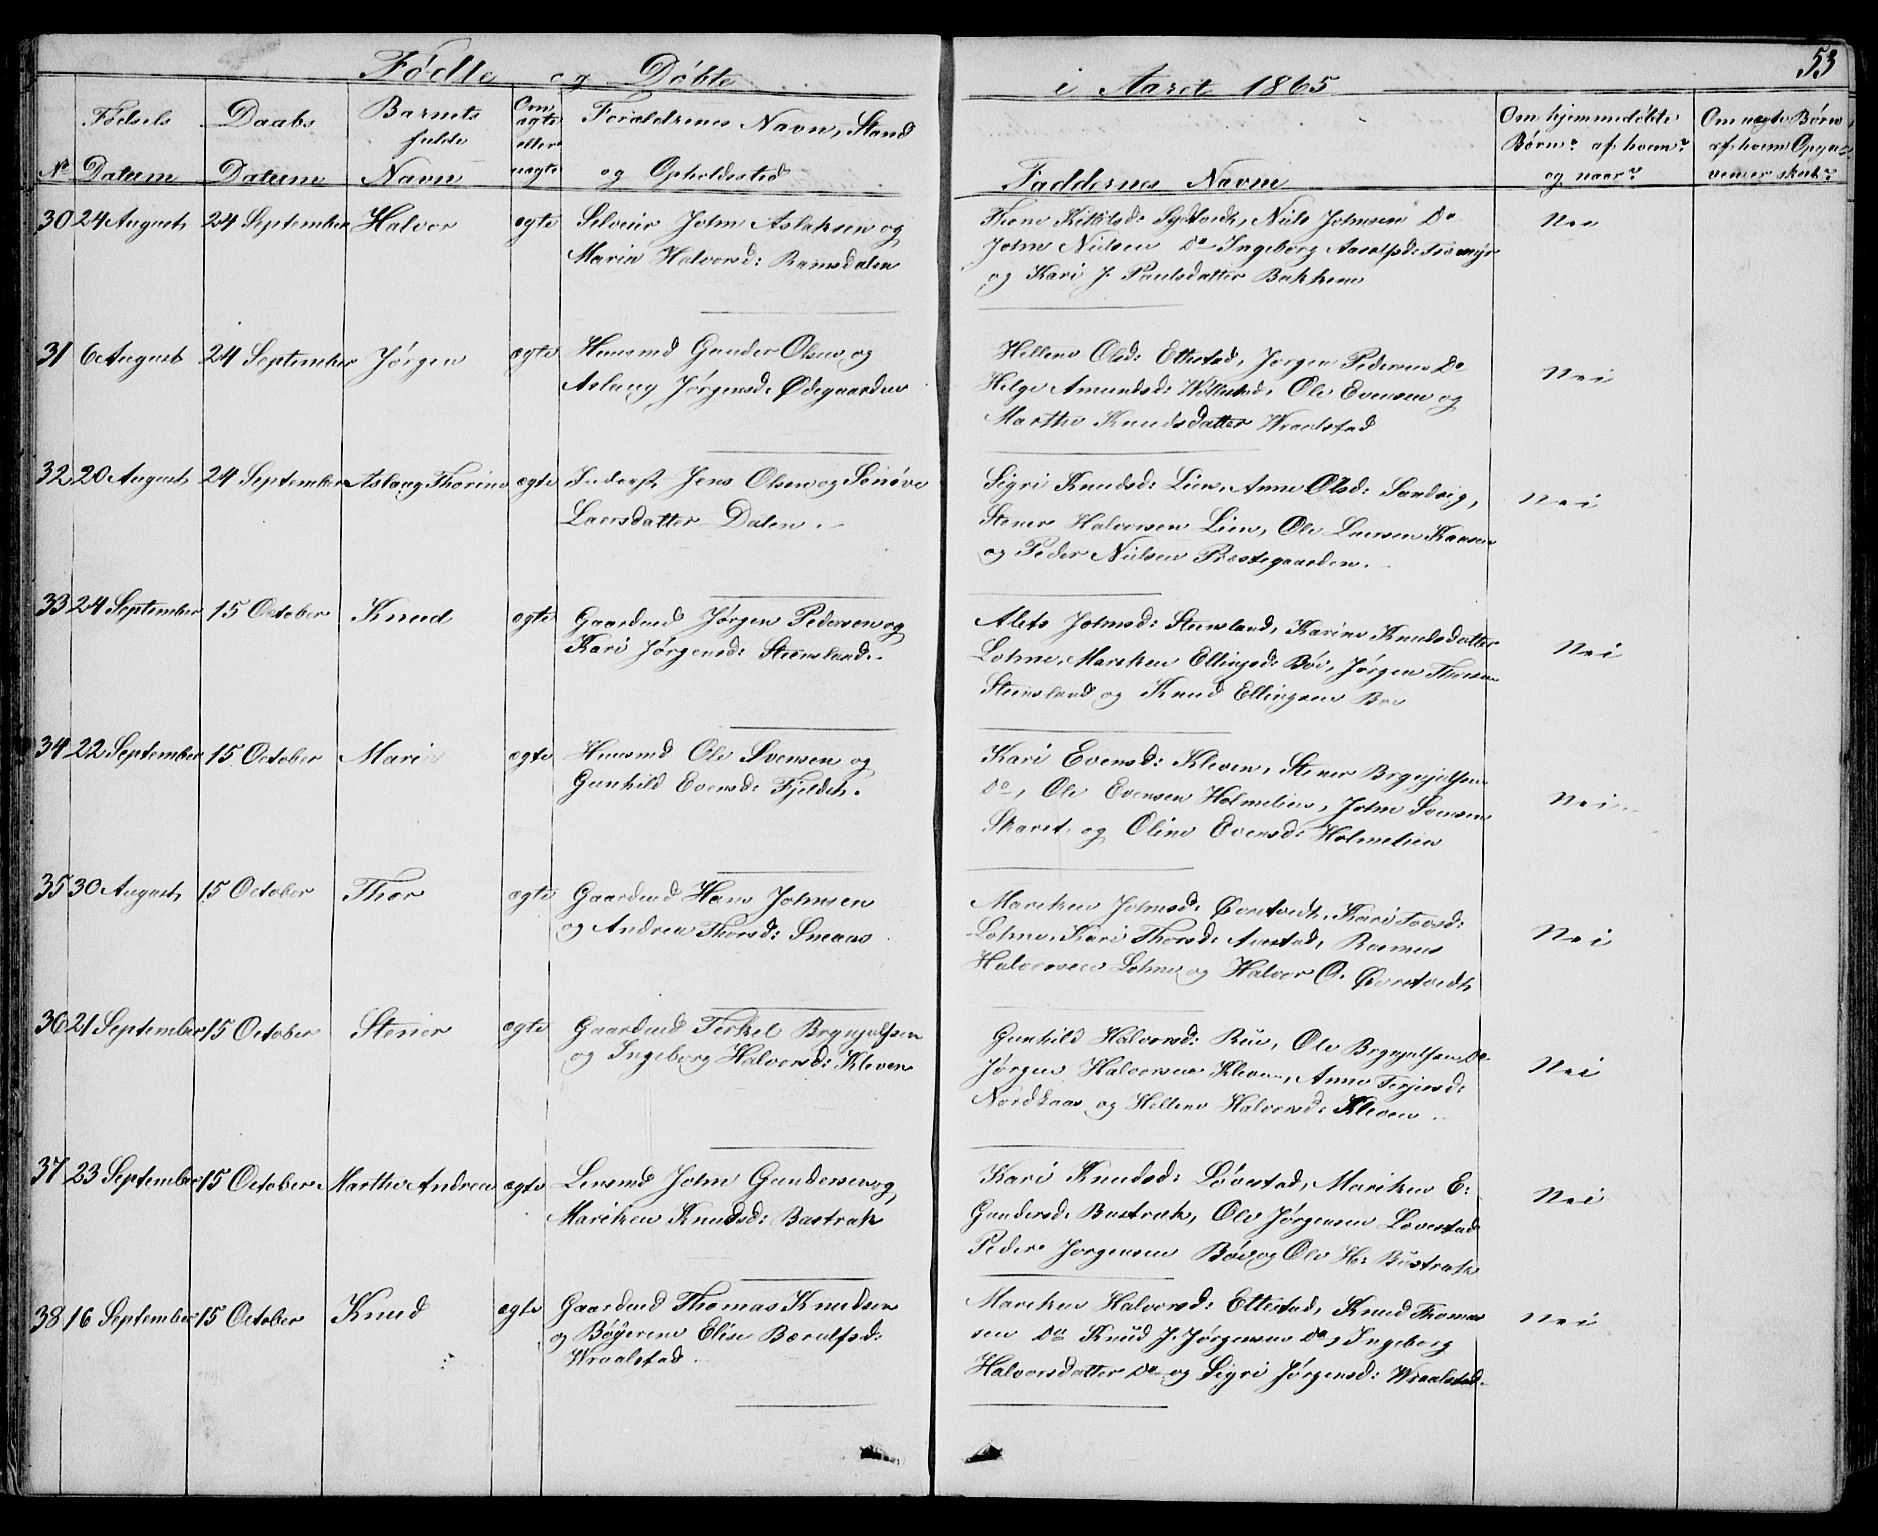 53
Fødte og Døbte i Aaret 1865
No
Fødsels Datum
Daabs Datum
Barnets fulde Navn
Om ægte eller uægte
Forældrenes Navn, Stand og Opholdssted
Faddernes Navne
Om hjemmedøbte Børn? af hvem? og naar?
Om uægte Børn, af hvem Opgivelsen er skeet?
30 24 August 24 September Halvor ægte Selveier John Aslaksen og
Maria Halvorsd: Ramsdalen
Kittilsd: Sydtvedt, Niels Johnsen Do
John Nielsen Do Ingeborg
og Kari J. Paulsdatter Bakkene
Nei
31 6 August 24 September Jørgen ægte Huusmd Gunder Olsen og
Aslaug Jørgensd: Ødegaarden
Hellene Olsd: Ettestad, Jørgen Pedersen Do
Helge Amundsd: Ole Evensen og
Marthe Knudsdatter Wraalstad
Nei
32 20 August 24 September Aslaug Thorine ægte Inderst Jens Olsen og Sønøve
Laersdatter Dalen.
Sigri Knudsd: Lien, Anne Olsd: Sandvig,
Stener Halvorsen Lien, Ole Laersen Kaasen
og Peder Nielsen Præstegaarden.
Nei
33 24 September 15 October Knud ægte Gaardmd Jørgen Pedersen og
Kari Jørgensd: Steensland.
Alets Johnsd: Steensland, Karine Knudsdatter
Lohne, Mareken Ellingsd: Bøe, Jørgen Thorsen
Steensland og Knud Ellingsen Bøe
Nei
34 22 September 15 October Mari ægte Huusmd Ole Svensen og
Gunhild Evensd: Fjeldet.
Kari Evensd: Kleven, Stener Brynjulfsen
Do, Ole Evensen Holmelien, John Svensen
Skaret, og Oline Evensd: Holmelien
Nei
35 30 August 15 October Thor ægte Gaardmd Hans Johnsen
og Andrea Thorsd: Snaas
Mareken Johnsd: Øvretvedt, Kari Tovsd:
Lohne, Kari Thorsd: Rasmus
Halvorsen Lohne og Halvor O. Øvretvedt
Nei
36 21 September 15 October Stener ægte Gaardmd Terkel Brynjulfsen
og Ingeborg Halvorsd: Kleven
Gunhild Halvorsd: Rue, Ole Brynjulfsen Do
Jørgen Halvorsen Kleven, Anne Terjersd:
og Hellene Halvorsd: Kleven.
Nei
37 23 September 15 October Marthe Andrea ægte Leiermd John Gundersen og
Mareken Knudsd: Bastrak
Kari Knudsd: Løvestad, Mareken E:
Gundersd: Bustrak, Ole Jørgensen Lovestad
Peder Jorgensen Bøe og Ole H: Bustrak
Nei
38 16 September 15 October Knud ægte Gaardmd Thomas Knudsen
og Elise Bærulfsd:
Wraalstad.
Mareken Halvorsd: Ettestad, Knud Thomas
sen Do Knud J. Jørgensen Do, Ingeborg
Halvorsdatter Do og Sigri Jørgensd: Wraalstad.
Nei